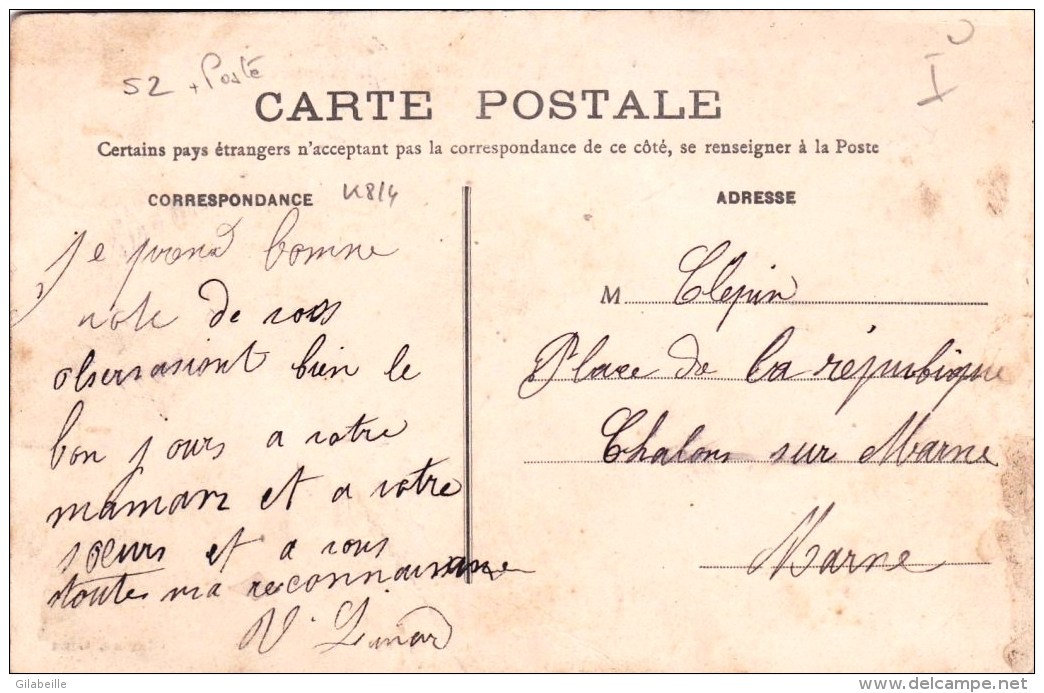 52 + Poste
CARTE POSTALE
Certains pays étrangers n'acceptant pas la correspondance de ce côté, se renseigner à la Poste
CORRESPONDANCE
ADRESSE
Je prend bonne
note de vos
observasiont bien le
bon jours a votre
maman et a votre
sœurs et a vous
toutes ma reconnaissance
V. Linard
M Clepin
Place de la république
Chalons sur Marne
Marne
Gilabeille
delcampe.net